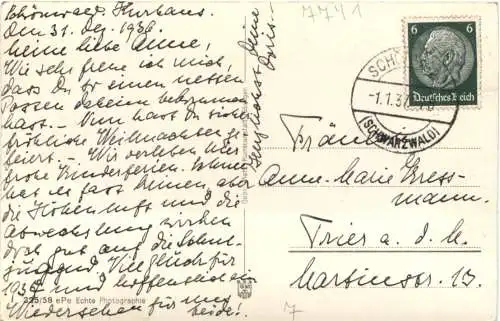 Schönwald, Kurhaus.
Am 31. Dez. 1936.
Meine liebe Anne,
Wie sehr freue ich mich,
dass Du so einen netten
Posten daheim bekommen
hast. – Nun hast Du sicher
fröhliche Weihnachten ge-
feiert. – Wir verleben hier
frohe Kinderferien. Schnee
hat es fast keinen, aber
die Höhenluft und die
Abwechslung wirken
doch gut auf die Schul-
jugend. Viel Glück für
1937 und hoffentlich ein
Wiedersehen für uns
beide!
Herzlichst Deine
Doris.
7741
SCHÖ
-1.1.37
(SCHWARZWALD)
6 6
Deutsches Reich
Fräulein
Anne-Marie Gress-
mann.
Trier a. d. M.
Martinstr. 17.
225/59 ePe Echte Photographie
7